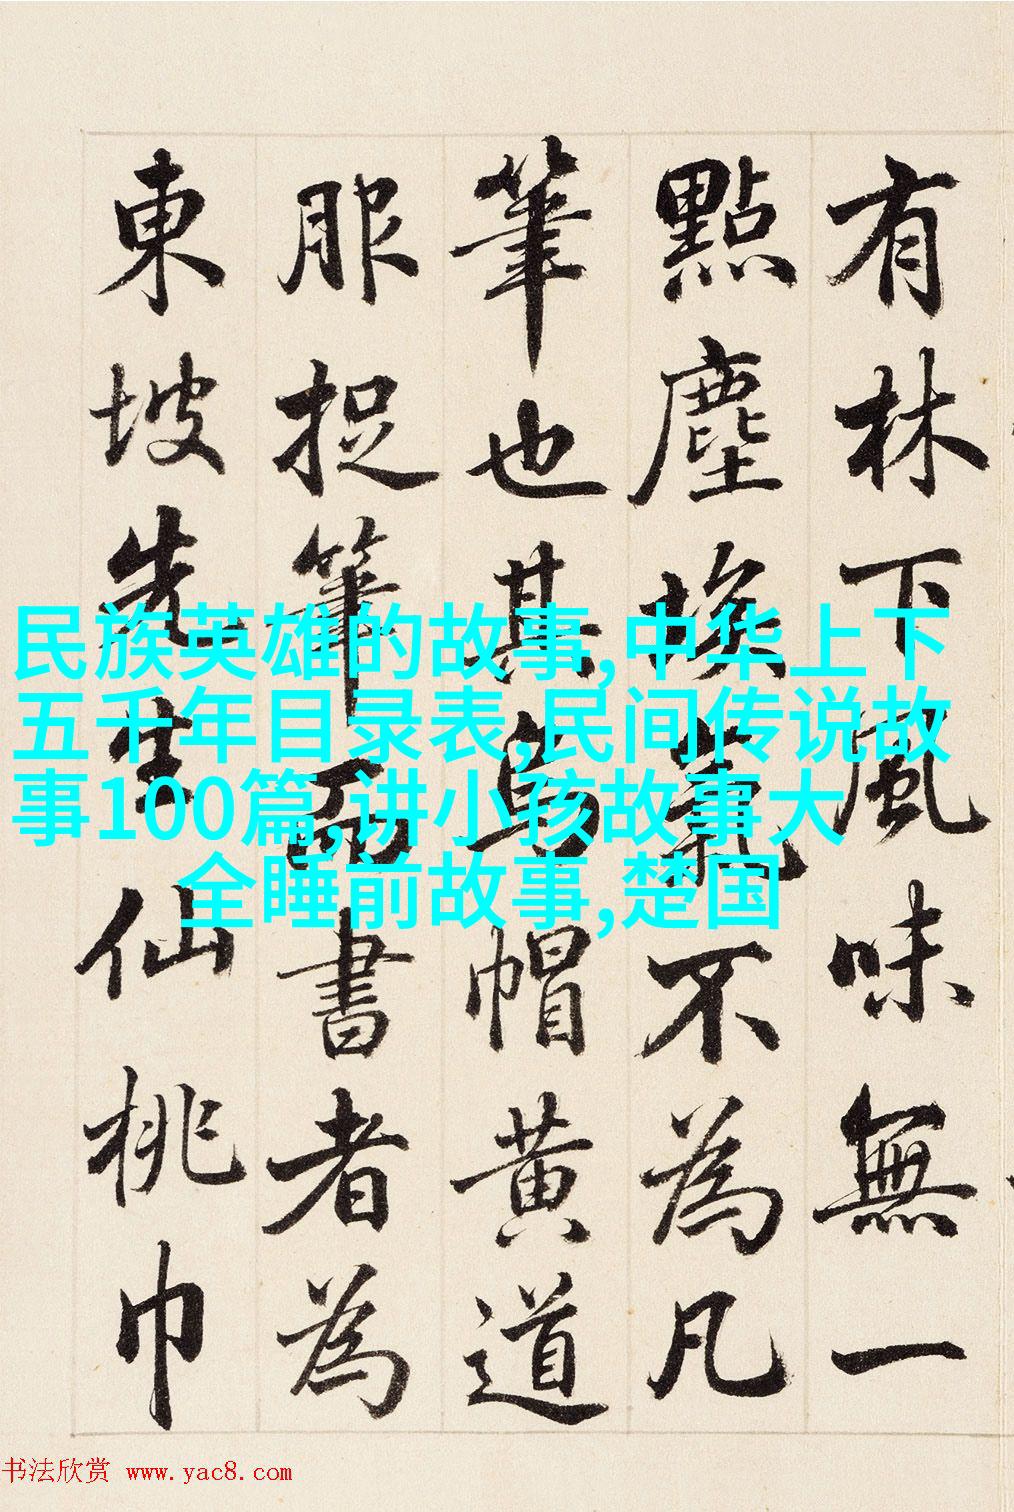 有林下風味無一
點塵埃氣不為凡
筆也其烏帽黃道
服捉筆而書者為
東坡先生仙桃巾
民族英雄的故事,中华上下
五千年目录表,民间传说故
事100篇,讲小孩故事大
全睡前故事,楚国
书法欣赏 www.yac8.com